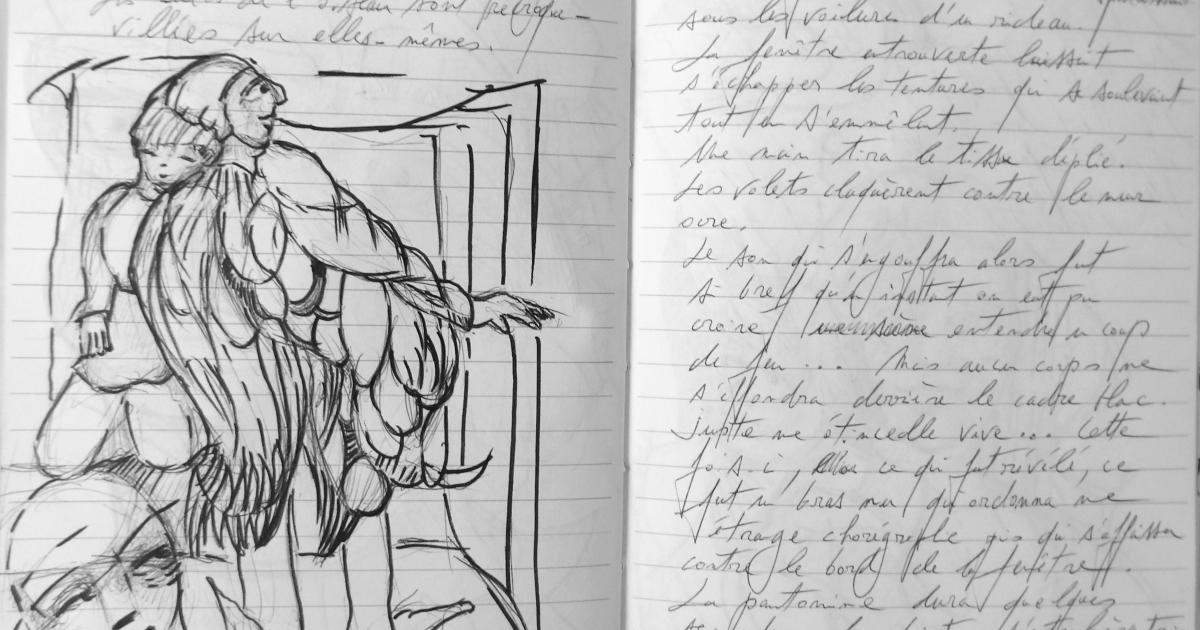 sont recroque-
villées sur elles-mêmes.
sous les voilures d'un rideau.
La fenêtre entrouverte laissait
s'échapper les tentures qui se soulevaient
tout en s'emmêlant.
Une main tira le tissu déplié.
Les volets claquèrent contre le mur
ocre.
Le son qui s'engouffra alors fut
si bref qu'un instant on eut pu
croire entendre un coup
de feu... Mais aucun corps ne
s'effondra derrière le cadre blanc.
Juste une étincelle vive... Cette
fois-ci, ce qui fut révélé, ce
fut un bras nu qui ordonna une
étrange chorégraphie puis qui s'affaissa
contre le bord de la fenêtre.
La pantomime dura quelques